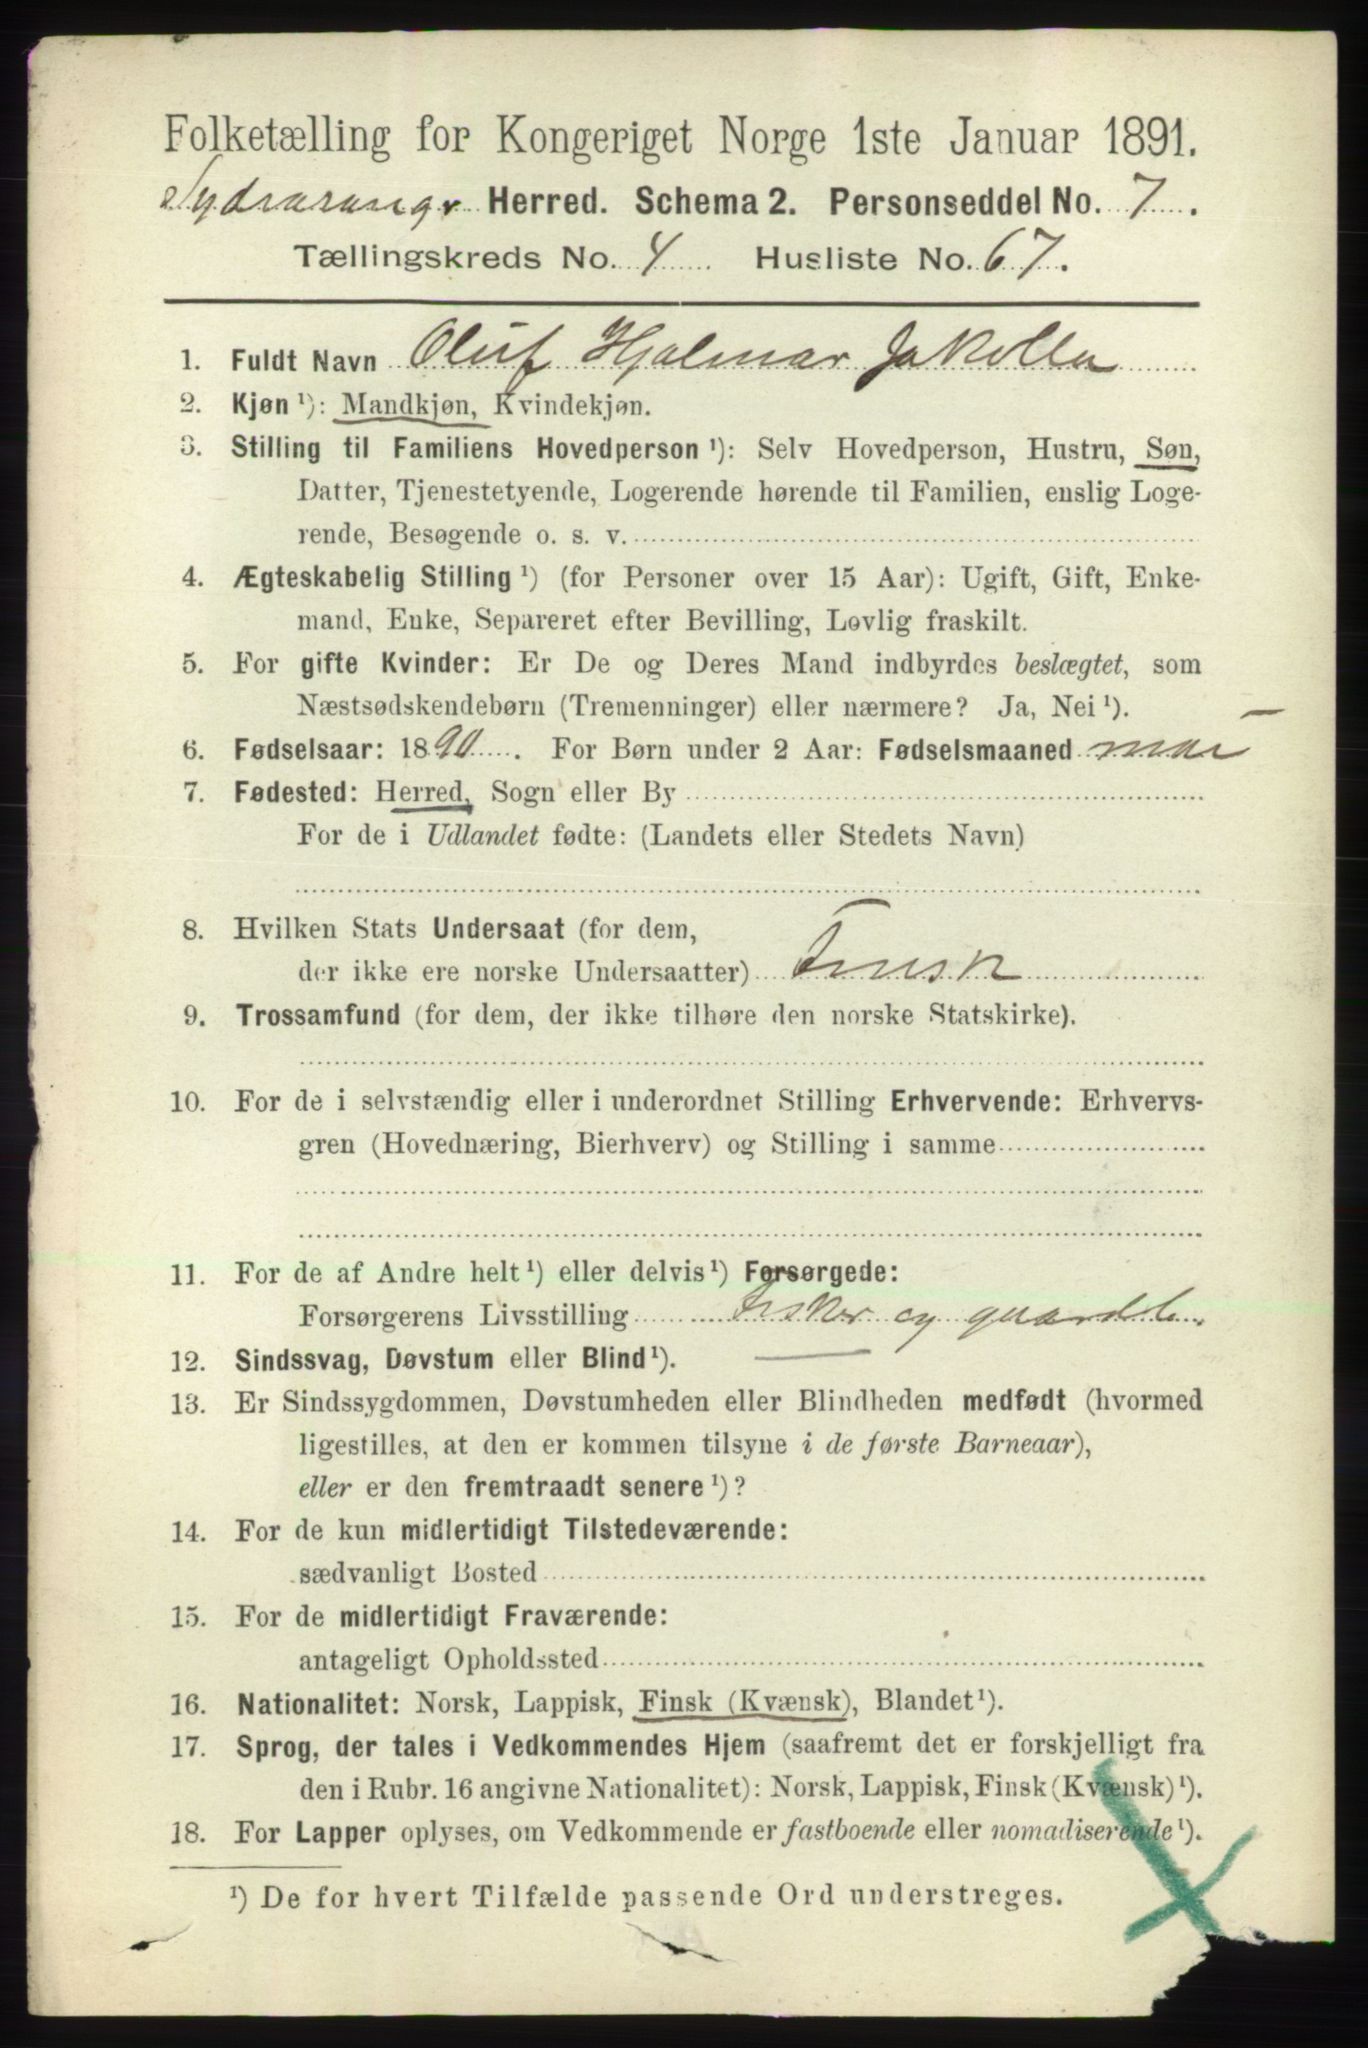 Folketælling for Kongeriget Norge 1ste Januar 1891.
Sydvaranger Herred. Schema 2. Personseddel No. 7.
Tællingskreds No. 4 Husliste No. 67.
1. Fuldt Navn Oluf Hjalmar Jakola
2. Kjøn ¹): Mandkjøn, Kvindekjøn.
3. Stilling til Familiens Hovedperson ¹): Selv Hovedperson, Hustru, Søn,
Datter, Tjenestetyende, Logerende hørende til Familien, enslig Loge-
rende, Besøgende o. s. v.
4. Ægteskabelig Stilling ¹) (for Personer over 15 Aar): Ugift, Gift, Enke-
mand, Enke, Separeret efter Bevilling, Løvlig fraskilt.
5. For gifte Kvinder: Er De og Deres Mand indbyrdes beslægtet, som
Næstsødskendebørn (Tremenninger) eller nærmere? Ja, Nei ¹).
6. Fødselsaar: 1890. For Børn under 2 Aar: Fødselsmaaned mai
7. Fødested: Herred, Sogn eller By
For de i Udlandet fødte: (Landets eller Stedets Navn)
8. Hvilken Stats Undersaat (for dem,
der ikke ere norske Undersaatter) Finsk
9. Trossamfund (for dem, der ikke tilhøre den norske Statskirke).
10. For de i selvstændig eller i underordnet Stilling Erhvervende: Erhvervs-
gren (Hovednæring, Bierhverv) og Stilling i samme
11. For de af Andre helt ¹) eller delvis ¹) Forsørgede:
Forsørgerens Livsstilling Fisker og gaardb.
12. Sindssvag, Døvstum eller Blind ¹).
13. Er Sindssygdommen, Døvstumheden eller Blindheden medfødt (hvormed
ligestilles, at den er kommen tilsyne i de første Barneaar),
eller er den fremtraadt senere ¹)?
14. For de kun midlertidigt Tilstedeværende:
sædvanligt Bosted
15. For de midlertidigt Fraværende:
antageligt Opholdssted
16. Nationalitet: Norsk, Lappisk, Finsk (Kvænsk), Blandet ¹).
17. Sprog, der tales i Vedkommendes Hjem (saafremt det er forskjelligt fra
den i Rubr. 16 angivne Nationalitet): Norsk, Lappisk, Finsk (Kvænsk) ¹).
18. For Lapper oplyses, om Vedkommende er fastboende eller nomadiserende ¹).
¹) De for hvert Tilfælde passende Ord understreges.